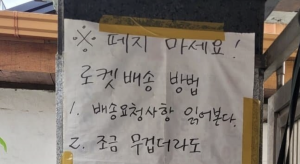 ※ 떼지 마세요!
로켓배송 방법
1. 배송요청사항 읽어본다.
2. 조금 무겁더라도